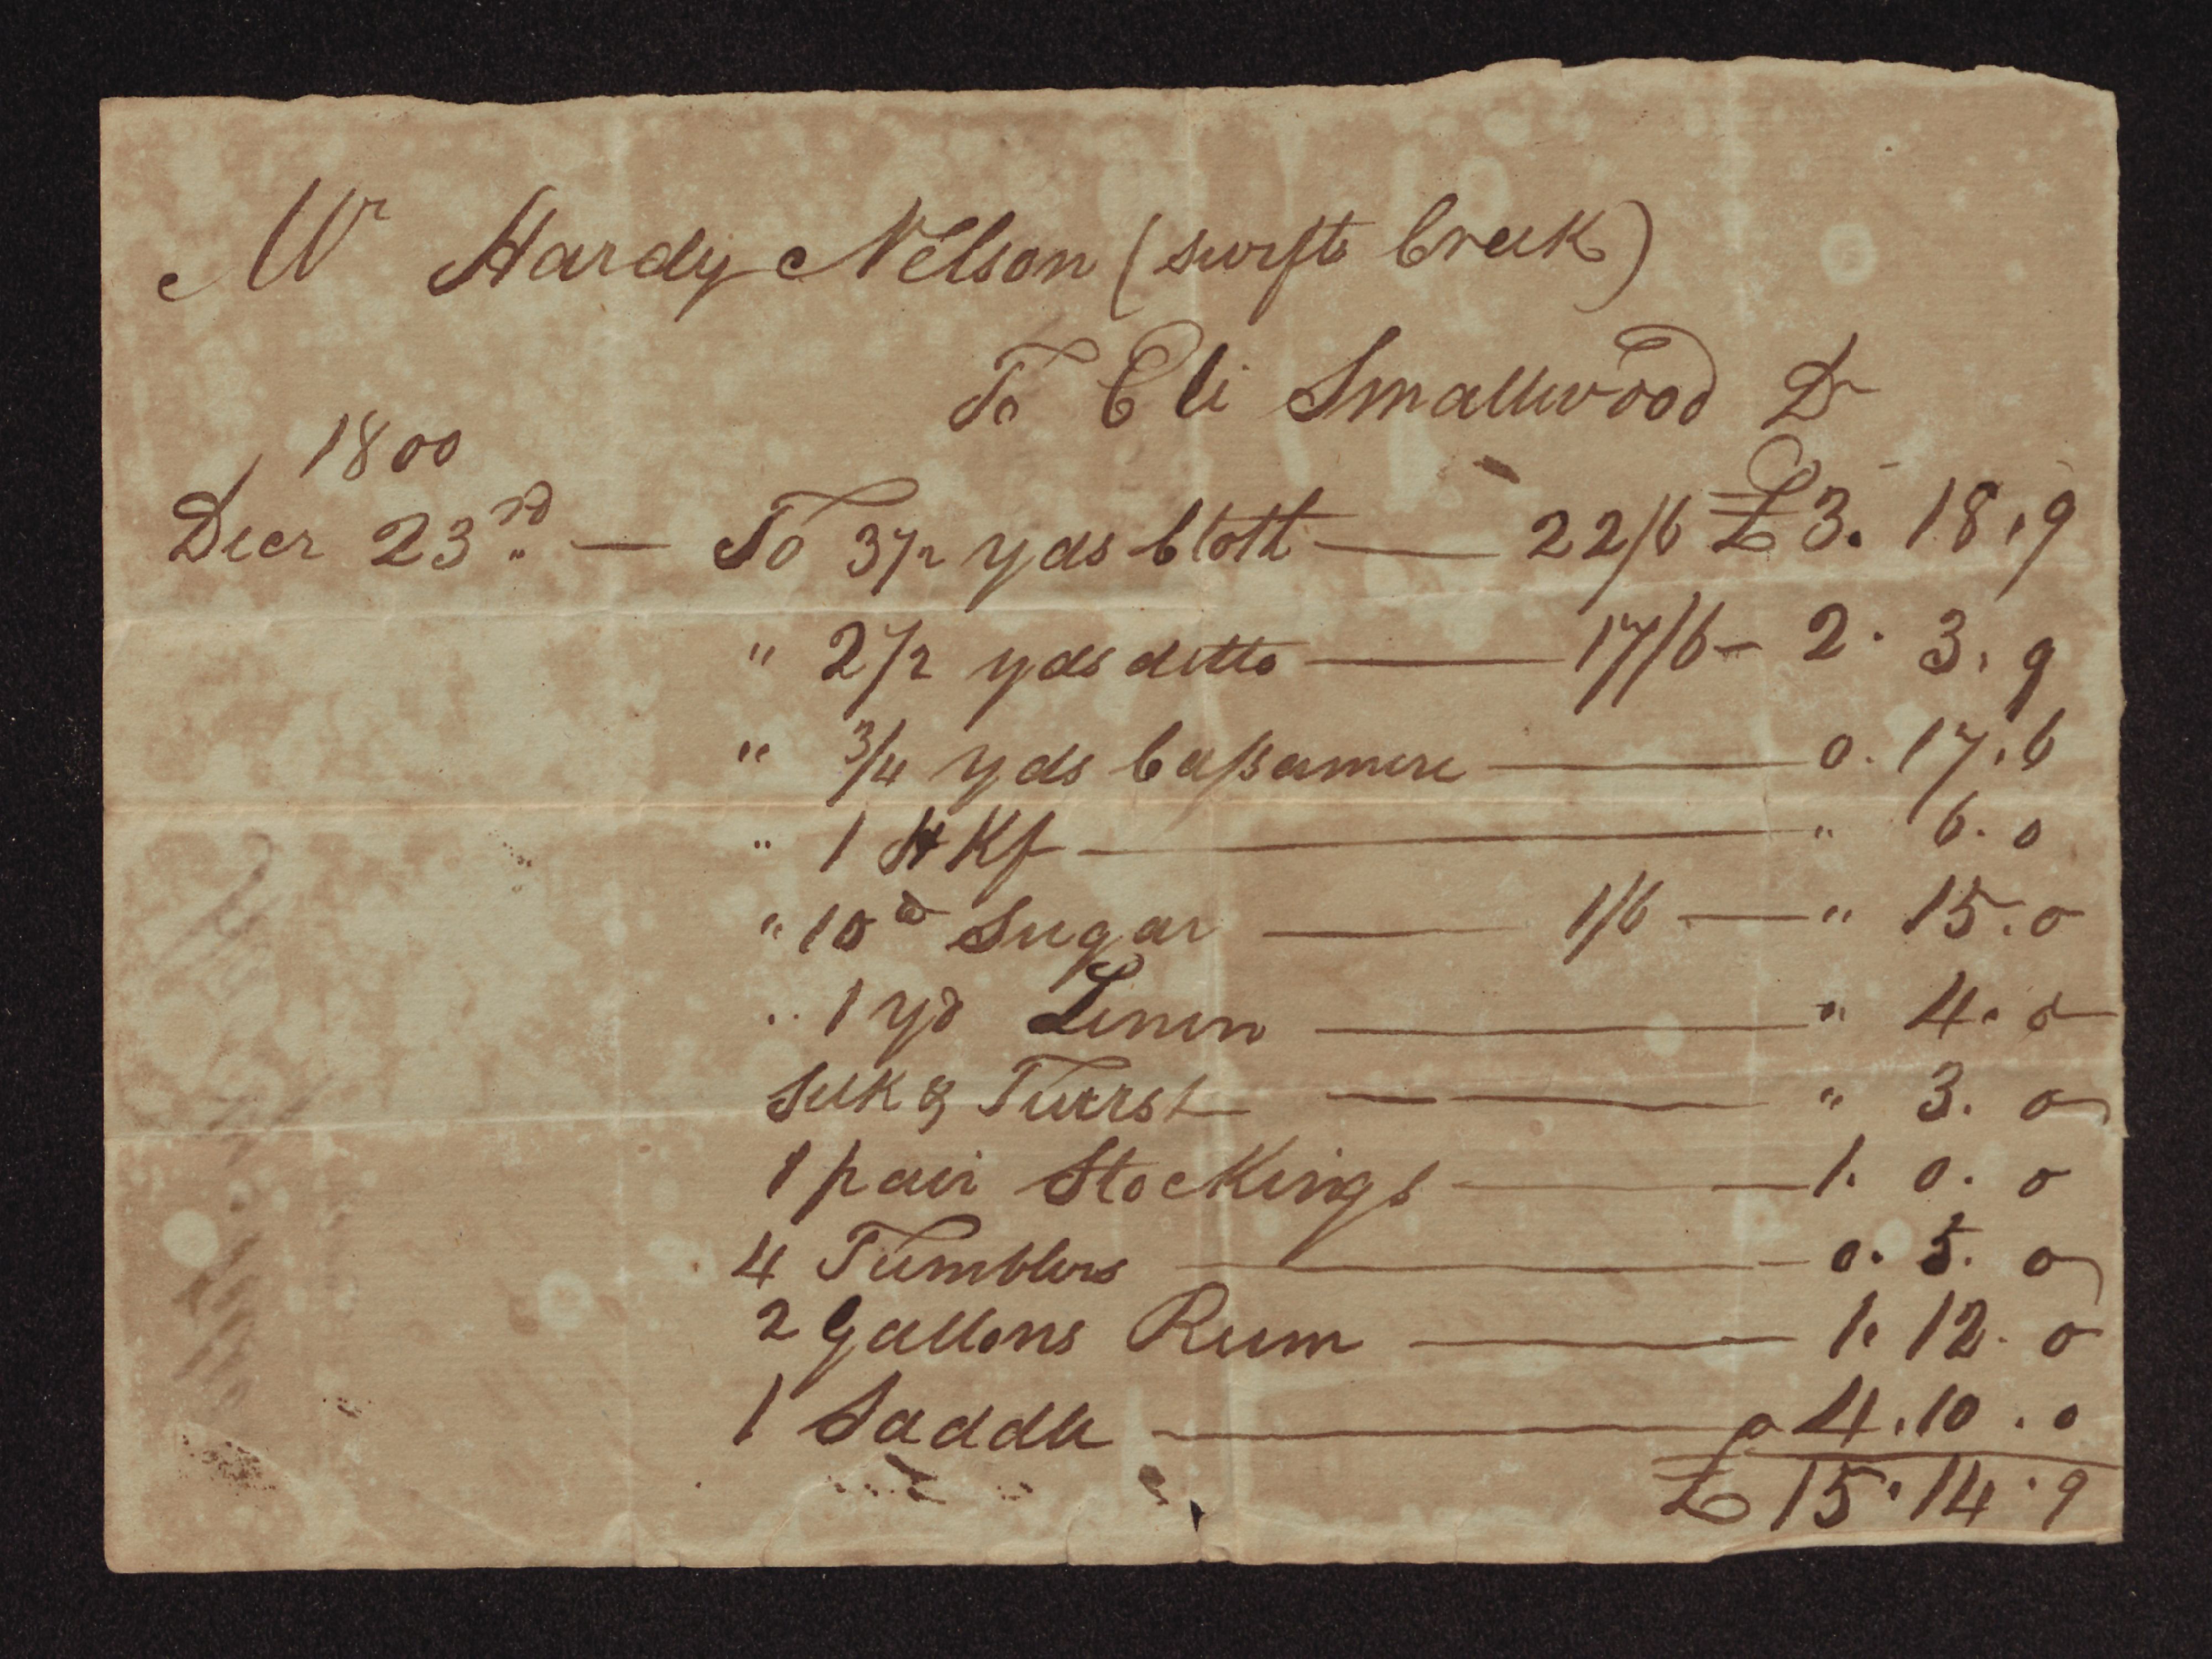 Mr Hardy Nelson (swift Creek)
To Eli Smallwood Dr
1800
Decr 23rd. — To 3 1/2 yds Cloth — 22/6 £3. 18. 9
" 2 1/2 yds ditto — 17/6 — 2. 3. 9
" 3/4 yds Cassamere — 0. 17. 6
" 1 HKf — " 6. 0
" 10 lb Sugar — 1/6 — " 15. 0
" 1 yd Linen — " 4. 0
Silk & Twist — " 3. 0
1 pair Stockings — 1. 0. 0
4 Tumblers — 0. 5. 0
2 Gallons Rum — 1. 12. 0
1 Saddle — 4. 10. 0
£ 15. 14. 9